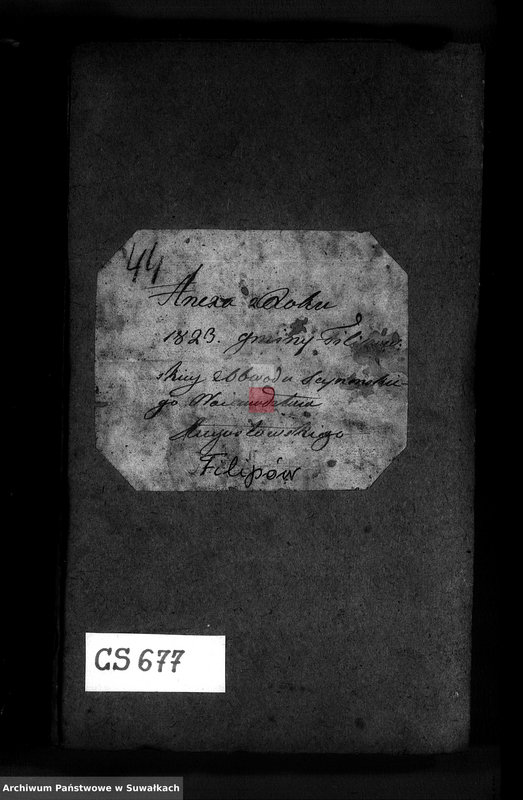 44
Anexa z Roku
1823. gminy Filipow.
skiey Obwodu Seynenskie-
go Woiewodztwa
Augustowskiego
Filipów
CS 677
Archiwum Państwowe w Suwałkach